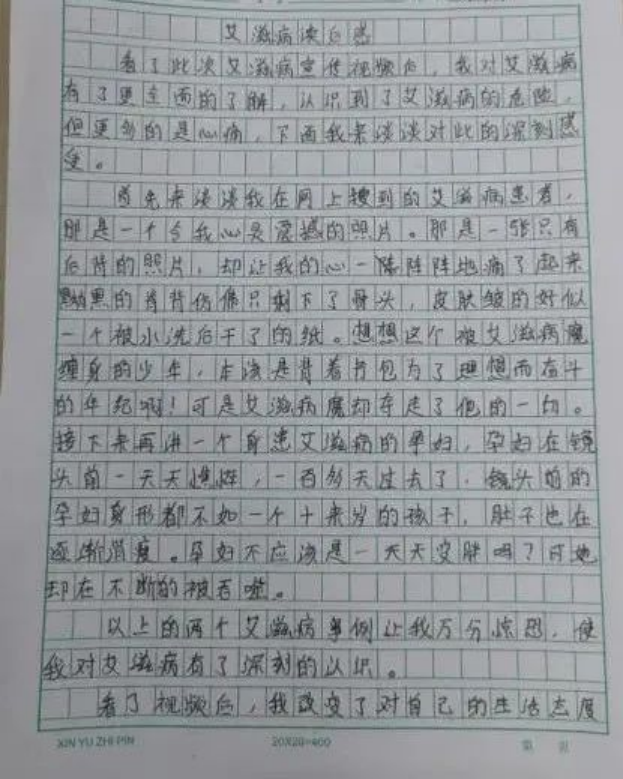 艾滋病读后感
看了此次艾滋病宣传视频后，我对艾滋病
有了更全面的了解，认识到了艾滋病的危险，
但更多的是心痛，下面我来谈谈对此的深刻感
受。
首先来谈谈我在网上搜到的艾滋病患者，
那是一个令我心灵震撼的照片。那是一张只有
后背的照片，却让我的心一阵阵阵地痛了起来
黝黑的脊背仿佛只剩下了骨头，皮肤皱的好似
一个被水洗后干了的纸。想想这个被艾滋病魔
缠身的少年，本该是背着书包为了理想而奋斗
的年纪啊！可是艾滋病魔却夺走了他的一切。
接下来再讲一个身患艾滋病的孕妇，孕妇在镜
头前一天天憔悴，一百多天过去了，镜头前的
孕妇身形都不如一个十来岁的孩子，肚子也在
逐渐消瘦。孕妇不应该是一天天变胖吗？可她
却在不断的被吞噬。
以上的两个艾滋病事例让我万分惊恐，使
我对艾滋病有了深刻的认识。
看了视频后，我改变了对自己的生活态度
XIN YU ZHI PIN 20X20=400 第 页